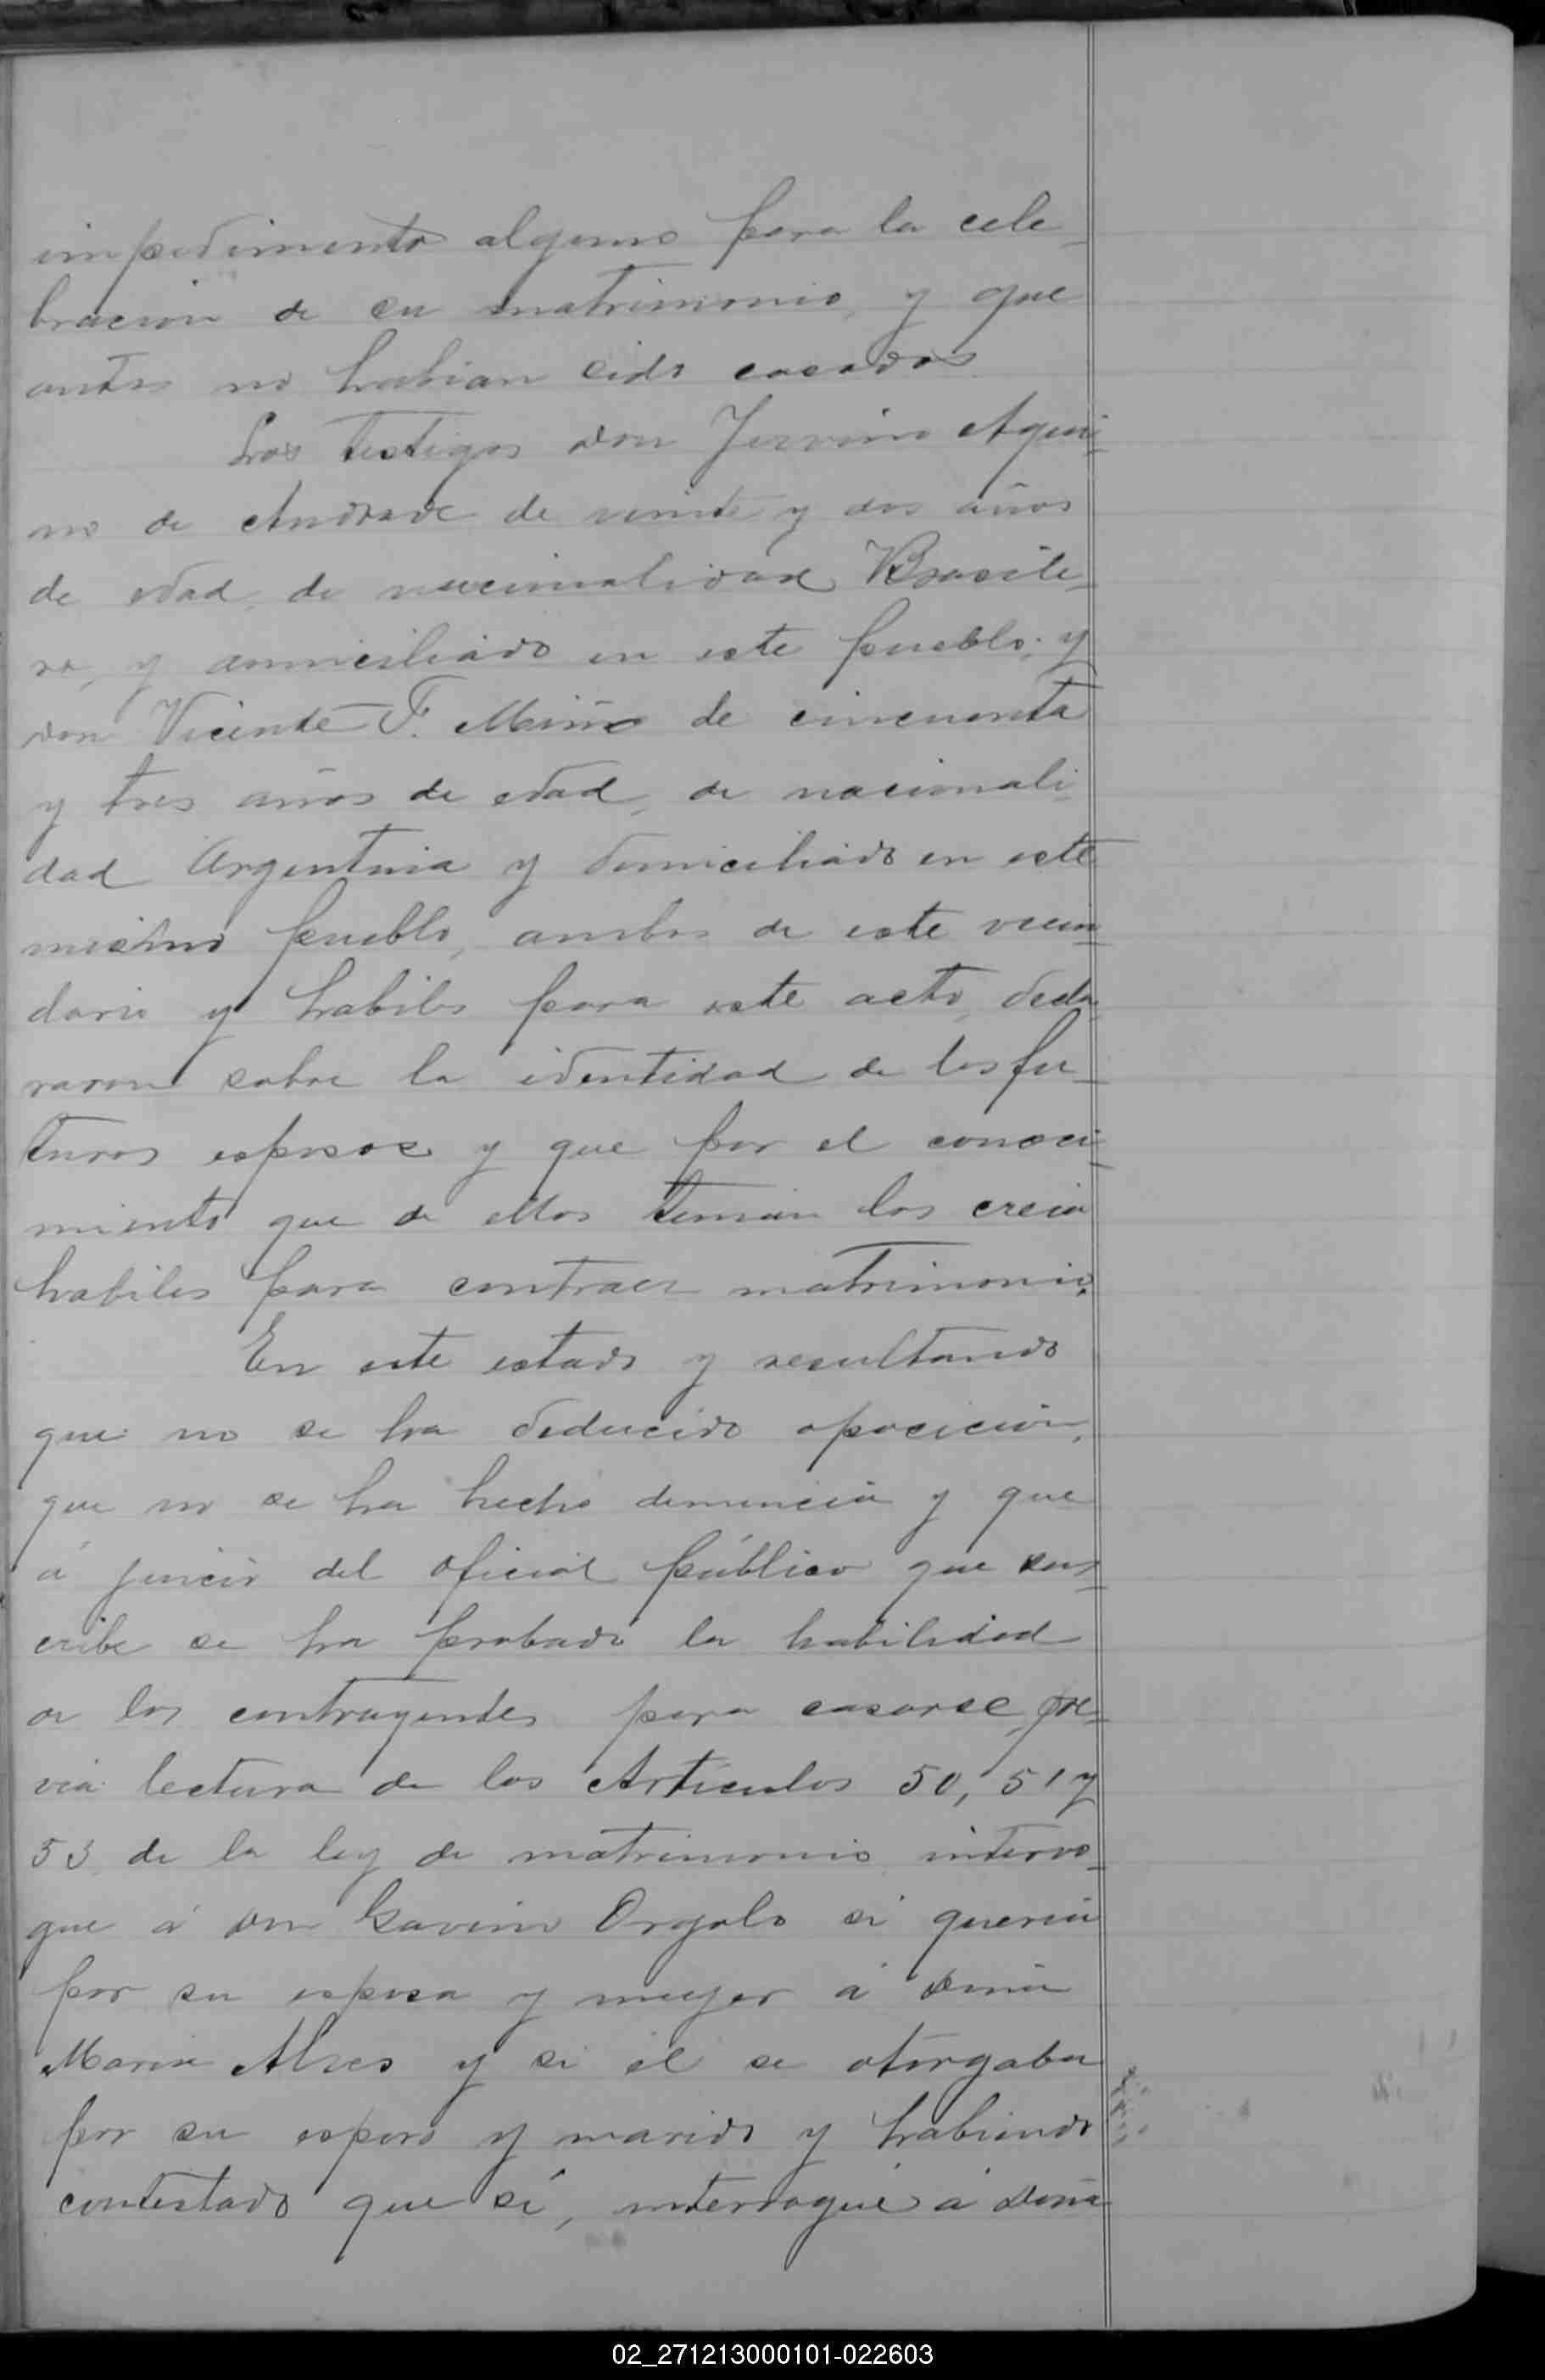 impedimento alguno para la cele-
bracion de su matrimonio, y que
antes no habian sido casados.
Los testigos don Jervino Aqui-
no de Andrade de veinte y dos años
de edad, de nacionalidad Brasile-
ra, y domiciliado en este pueblo; y
don Vicente F. Miño de cincuenta
y tres años de edad, de nacionali-
dad Argentina y domiciliado en este
mismo pueblo, ambos de este vecin-
dario y habiles para este acto, decla-
raron sobre la identidad de los fu-
turos esposos y que por el conoci-
miento que de ellos tenian los creia
habiles para contraer matrimonio.
En este estado y resultando
que no se ha deducido oposicion,
que no se ha hecho denuncia y que
á juicio del oficial público que sus-
cribe se ha probado la habilidad
de los contrayentes para casarse, pre-
via lectura de los Artículos 50, 51 y
53 de la ley de matrimonio interro-
gue á don Gavino Orgalo si queria
por su esposa y mujer á doña
Maria Alves y si él se otorgaba
por su esposo y marido y habiendo
contestado que sí, interrogué á doña
02_271213000101-022603